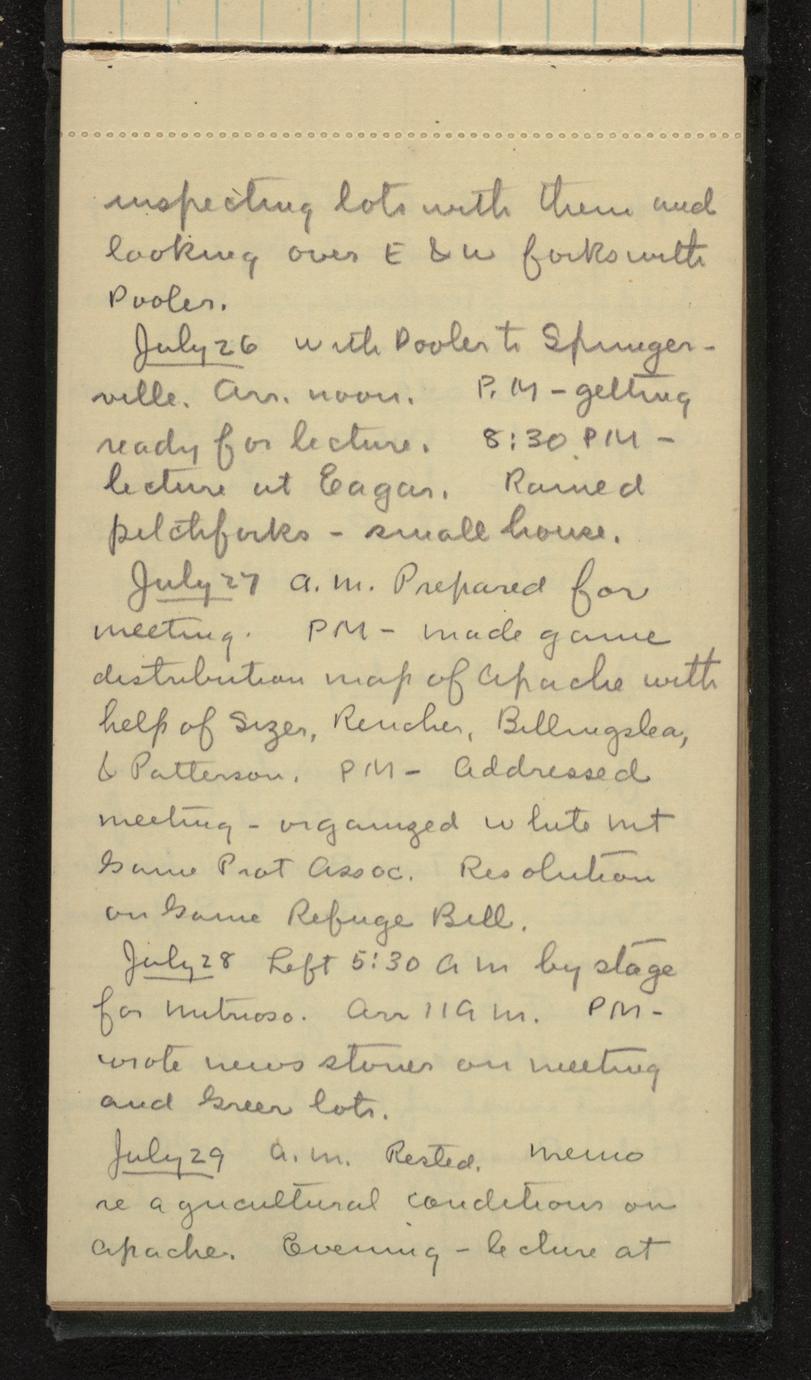 inspecting lots with them and
looking over E & W forks with
Pooler.
July 26 with Pooler to Springer-
ville. Arr. noon. P.M - getting
ready for lecture. 8:30 PM -
lecture at Eagar. Rained
pitchforks - small house.
July 27 a.m. Prepared for
meeting. PM - made game
distribution map of Apache with
help of Sizer, Rencher, Billingslea,
& Patterson. PM - Addressed
meeting - organized White Mt
Game Prot Assoc. Resolution
on Game Refuge Bill.
July 28 Left 5:30 AM by stage
for Nutrioso. Arr 11 AM. PM -
wrote news stories on meeting
and Greer lots.
July 29 A.M. Rested. Memo
re agricultural conditions on
Apache. Evening - lecture at